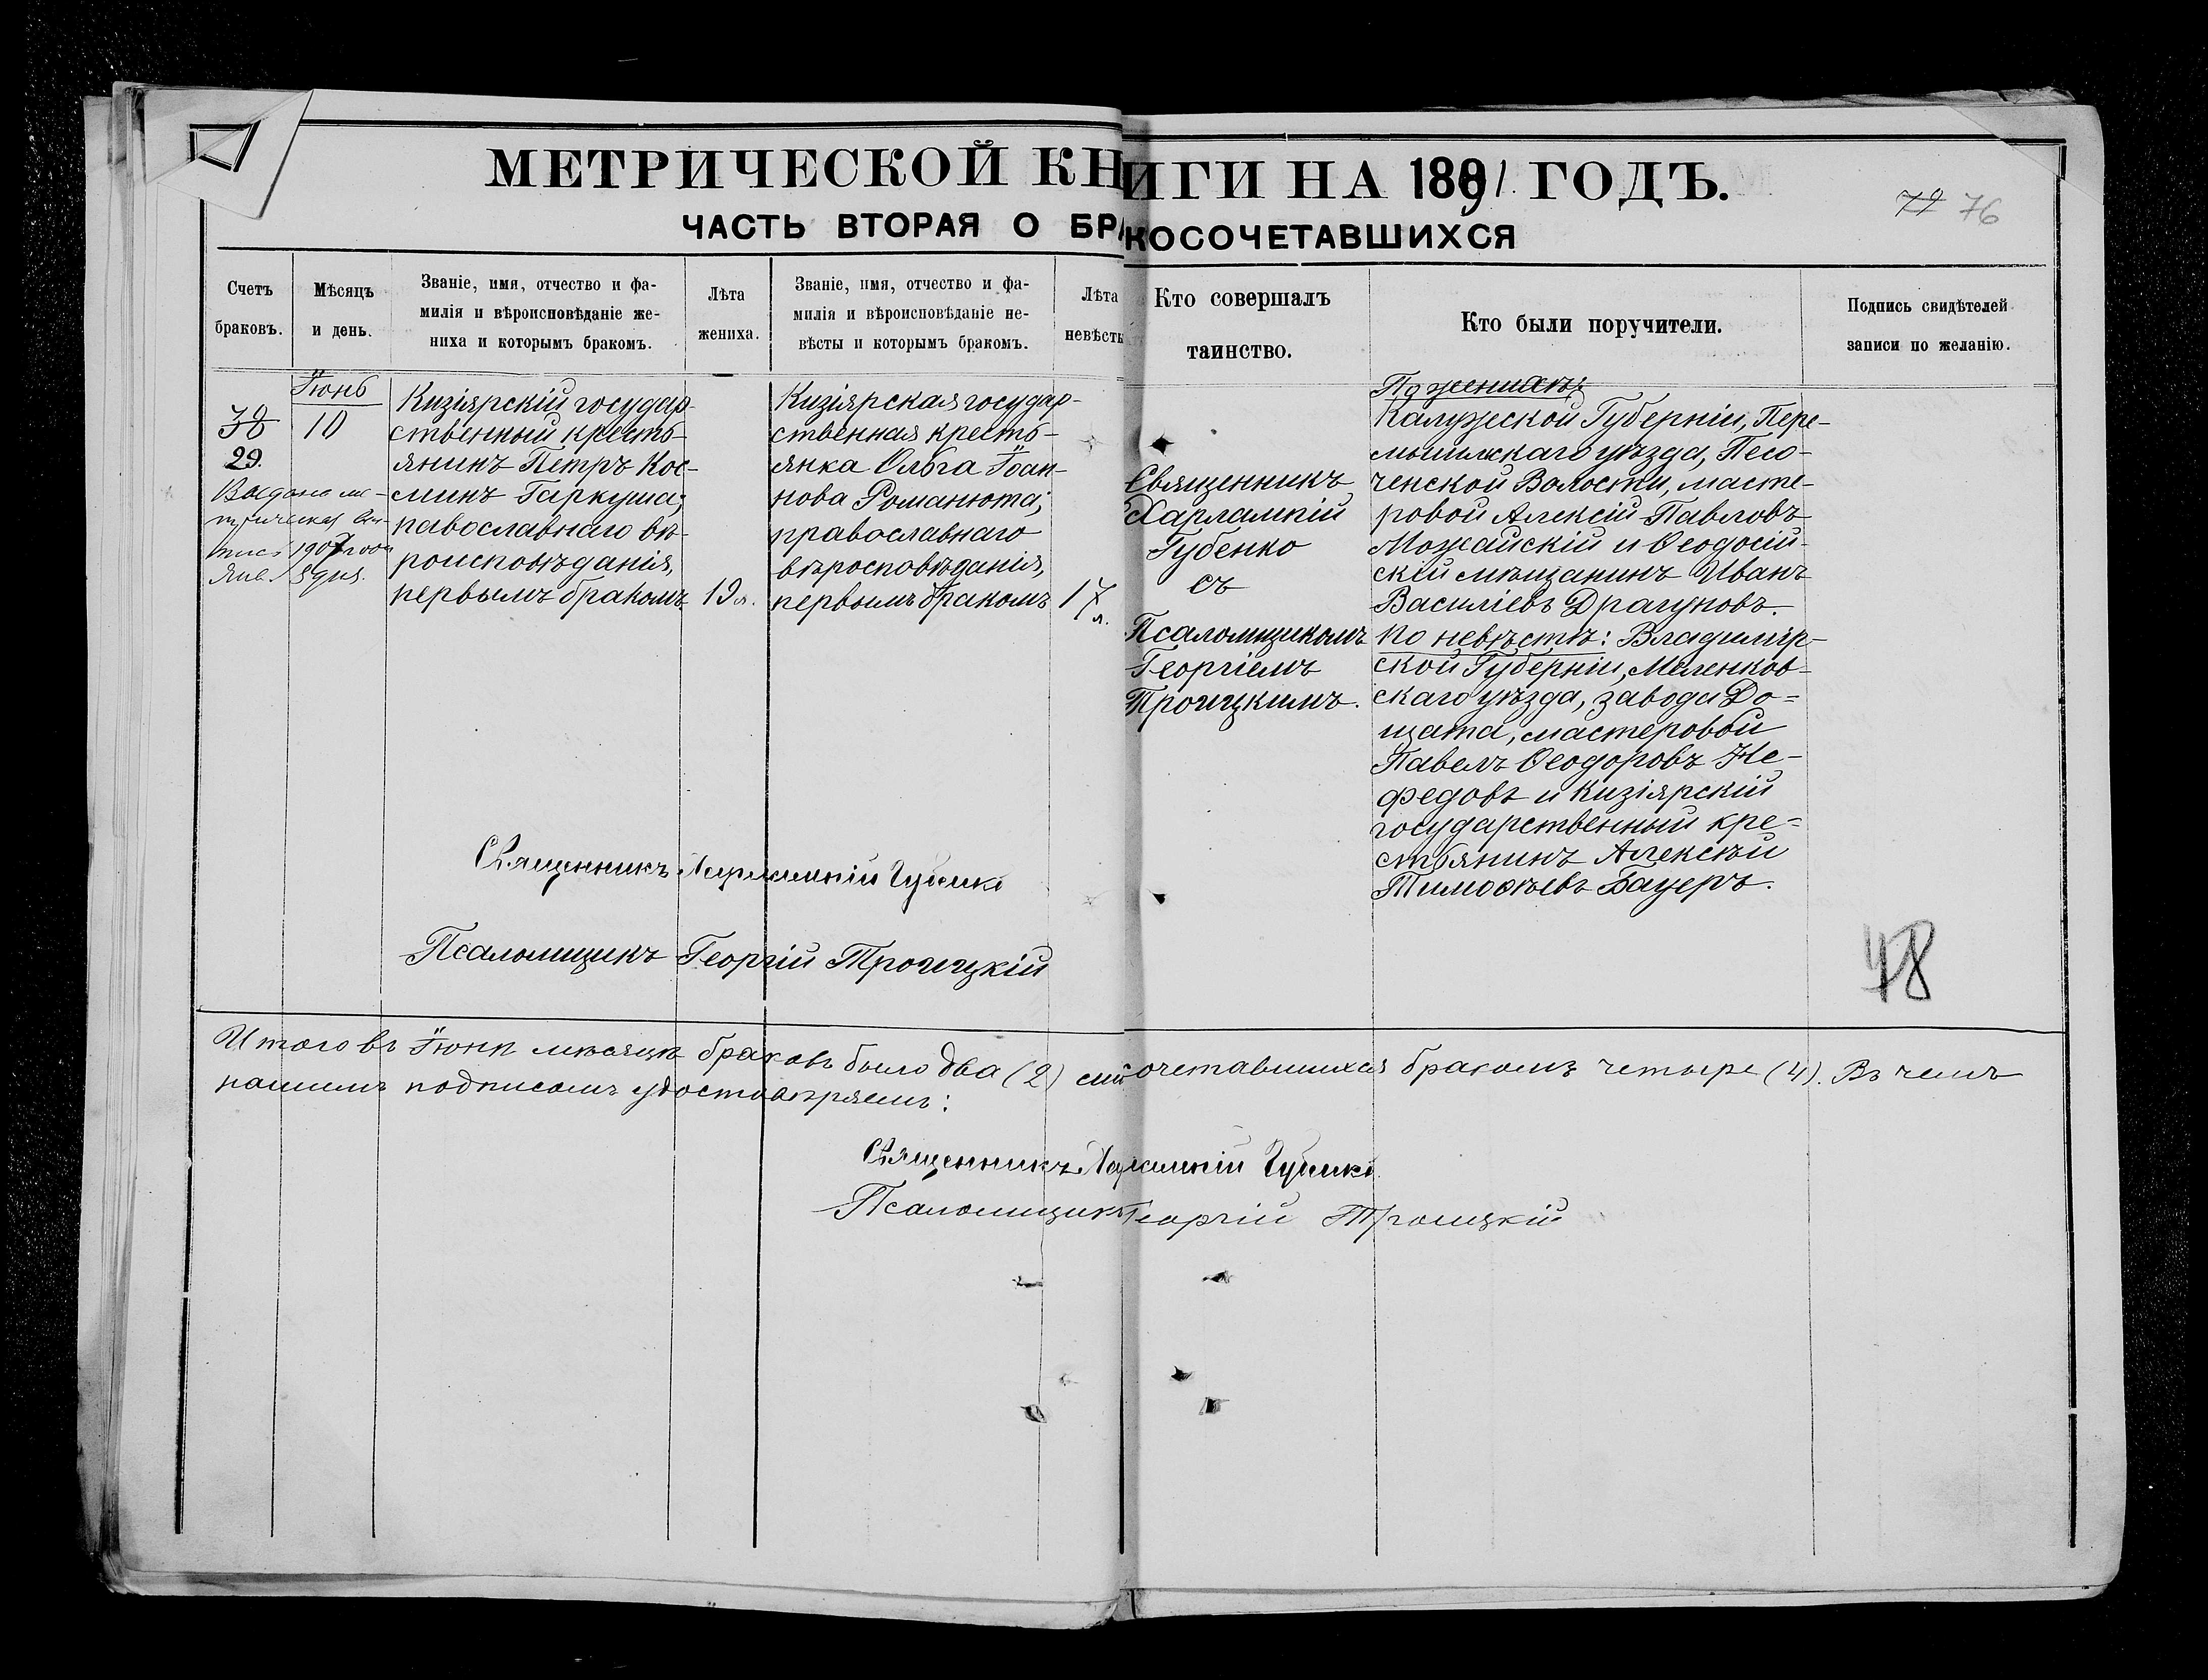 МЕТРИЧЕСКОЙ КНИГИ НА 1891 ГОДЪ.
79 76
ЧАСТЬ ВТОРАЯ О БРАКОСОЧЕТАВШИХСЯ
Счетъ
браковъ.
Мѣсяцъ
и день.
Званіе, имя, отчество и фа-
милія и вѣроисповѣданіе же-
ниха и которымъ бракомъ.
Лѣта
жениха.
Званіе, имя, отчество и фа-
милія и вѣроисповѣданіе не-
вѣсты и которымъ бракомъ.
Лѣта
невѣсты
Кто совершалъ
таинство.
Кто были поручители.
Подпись свидѣтелей
записи по желанію.
29.
Выдана ме-
трическая вы-
пись 1907 года
Янв. 8 дня.
Іюнь
10
Кизіярскій государ-
ственный кресть-
янинъ Петръ Кос-
минъ Гаркуша;
павославнаго вѣ-
роисповѣданія,
первымъ бракомъ
19 л.
Кизіярская государ-
ственная кресть-
янка Ольга Іоан-
нова Романюта;
православнаго
вѣросповѣданія,
первымъ бракомъ
17
л.
Священникъ
Харлампій
Губенко
съ
Псаломщикомъ
Георгіемъ
Троицкимъ.
По женихѣ:
Калужской Губерніи, Пере-
мышлскаго уѣзда, Песо-
ченской Волости, масте-
ровой Алексій Павловъ
Можайскій и Ѳеодосій-
скій мѣщанинъ Иванъ
Василіевъ Драгуновъ.
по невѣстѣ: Владимір-
ской Губерніи, Меленков-
скаго уѣзда, завода До-
щата, мастеровой
Павелъ Ѳеодоровъ Не-
федовъ и Кизіярскій
государственный кре-
стьянинъ Алексѣй
Тимоѳѣевъ Бауеръ.
Священникъ Харлампій Губенко
Псаломщикъ Георгій Троицкій
48
Итого въ Іюнѣ мѣсяцѣ браковъ было два (2) сочетавшихся бракомъ четыре (4). Въ чемъ
нашимъ подписомъ удостовѣряемъ:
Священникъ Харлампій Губенко
Псаломщикъ Георгій Троицкій